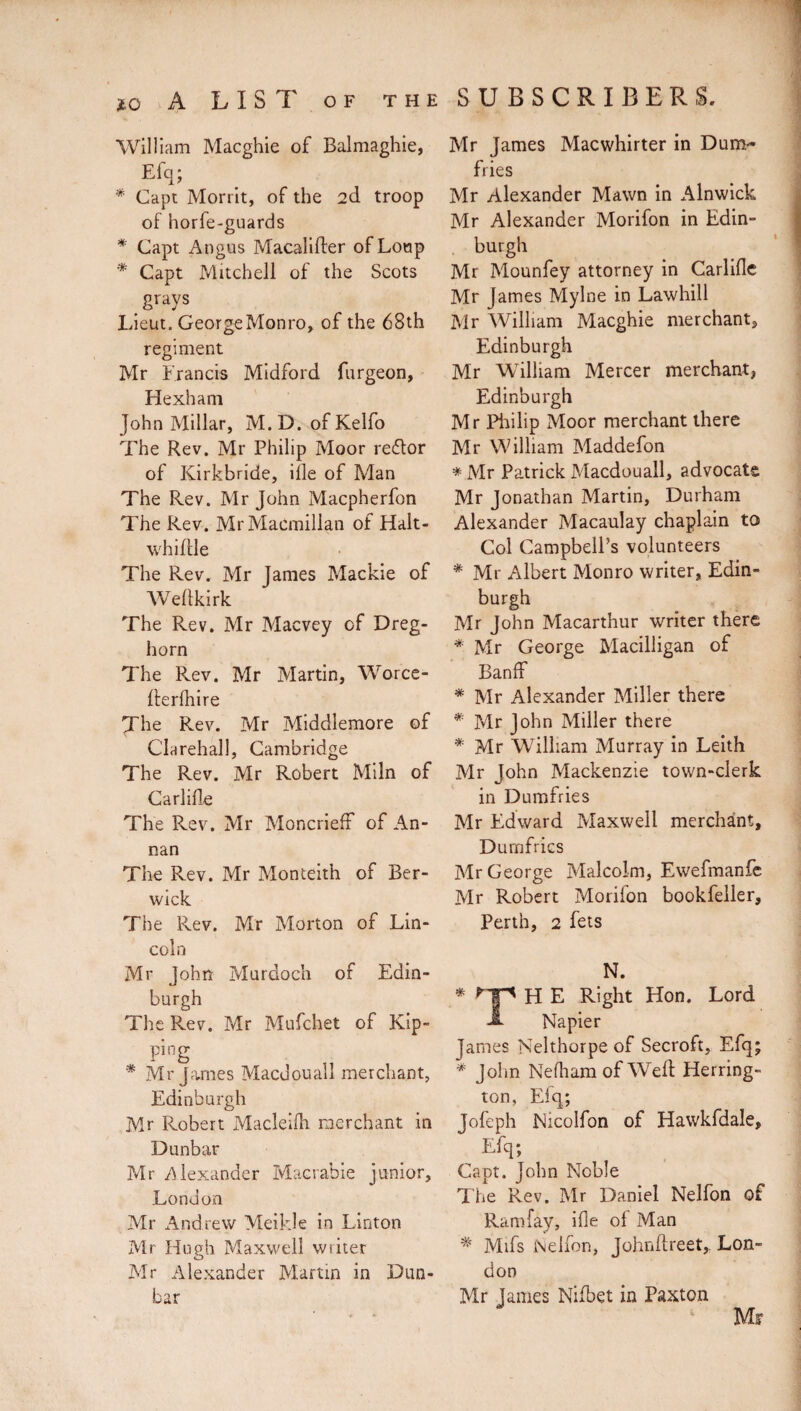 10 A LIST OF THE SUBSCRIBERS.
William Macghie of Balmaghie,
Efq;
* Capt Morrit, of the 2d troop
of horfe-guards
* Capt Angus Macalifter of Loup
* Capt Mitchell of the Scots
grays
Lieut. George Monro, of the 68th
regiment
Mr Francis Midford furgeon,
Hexham
John Millar, M. D. of Kelfo
The Rev. Mr Philip Moor rector
of Kirkbride, ifle of Man
The Rev. Mr John Macpherfon
The Rev. Mr Macmillan of Halt-
whiftle
The Rev. Mr James Mackie of
Weftkirk
The Rev. Mr Macvey of Dreg-
horn
The Rev. Mr Martin, Worce-
fterfhire
The Rev. Mr Middlemore of
Clarehall, Cambridge
The Rev. Mr Robert Miln of
Carlifle
The Rev. Mr Moncrieff of An-
nan
The Rev. Mr Monteith of Ber-
wick
The Rev. Mr Morton of Lin-
coln
Mr John Murdoch of Edin-
burgh
The Rev. Mr Mufchet of Kip-
ping
* Mr James Macdouall merchant,
Edinburgh
Mr Robert Macleifh merchant in
Dunbar
Mr Alexander Macrabie junior,
London
Mr Andrew Meikle in Linton
Mr Hugh Maxwell writer
Mr Alexander Martin in Dun-
bar
Mr James Macwhirter in Dum-
fries
Mr Alexander Mawn in Alnwick
Mr Alexander Morifon in Edin-
burgh
Mr Mounfey attorney in Carlifle
Mr James Mylne in Lawhill
Mr William Macghie merchant,
Edinburgh
Mr William Mercer merchant,
Edinburgh
Mr Philip Moor merchant there
Mr William Maddefon
* Mr Patrick Macdouall, advocate
Mr Jonathan Martin, Durham
Alexander Macaulay chaplain to
Col Campbell's volunteers
* Mr Albert Monro writer, Edin-
burgh
Mr John Macarthur writer there
* Mr George Macilligan of
Banff
* Mr Alexander Miller there
* Mr John Miller there
* Mr William Murray in Leith
Mr John Mackenzie town-clerk
in Dumfries
Mr Edward Maxwell merchant,
Dumfries
Mr George Malcolm, Ewefmanfe
Mr Robert Morifon bookfeller,
Perth, 2 fets
N.
* THE Right Hon. Lord
Napier
James Nelthorpe of Secroft, Efq;
* John Nefham of Weft Herring-
ton, Efq;
Jofeph Nicolfon of Hawkfdale,
Efq;
Capt. John Noble
The Rev. Mr Daniel Nelfon of
Ramfay, ifle of Man
* Mifs Nelfon, Johnftreet, Lon-
don
Mr James Nifbet in Paxton
Mr